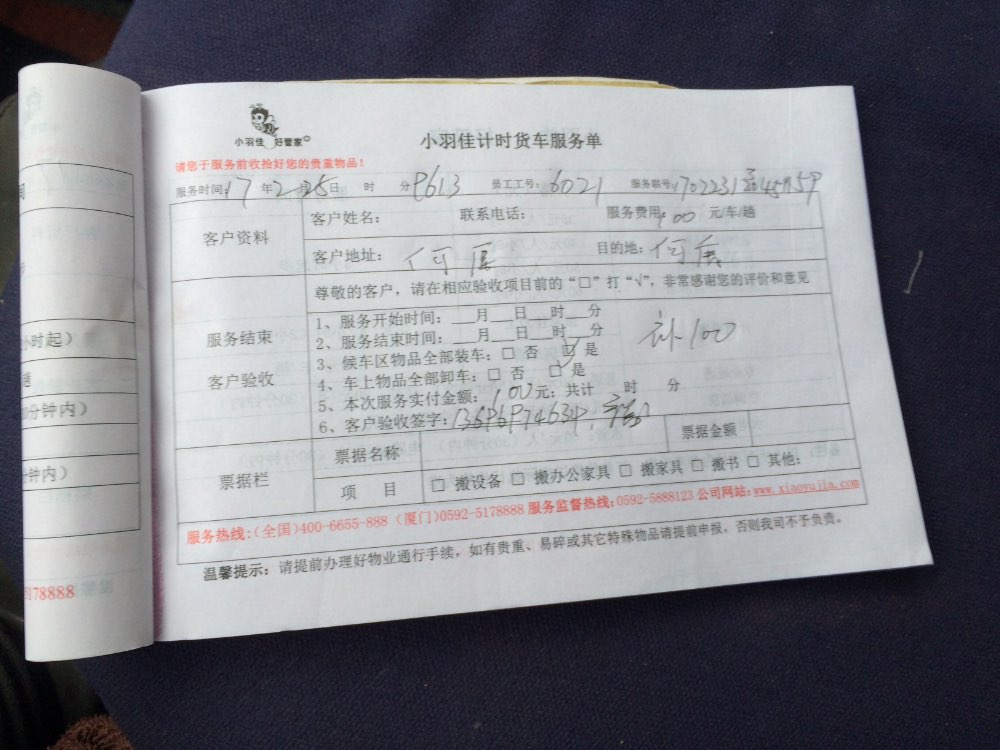 小羽佳 好管家
小羽佳计时货车服务单
请您于服务前收拾好您的贵重物品！
服务时间：17年2月25日 时 分 9613 员工工号：6021 服务联号：
客户资料
客户姓名： 联系电话： 服务费用：100 元/车/趟
客户地址： 何厝 目的地：何厝
尊敬的客户，请在相应验收项目前的“□”打“√”，非常感谢您的评价和意见
服务结束
客户验收
1、服务开始时间：___月___日___时___分
2、服务结束时间：___月___日___时___分
3、候车区物品全部装车：□ 否 ☑ 是
4、车上物品全部卸车：□ 否 ☑ 是
5、本次服务实付金额：100元；共计 时 分
6、客户验收签字：
补100
票据栏
票据名称 票据金额
项 目 □ 搬设备 □ 搬办公家具 □ 搬家具 □ 搬书 □ 其他：
服务热线：（全国）400-6655-888（厦门）0592-5178888 服务监督热线：0592-5888123 公司网站：www.xiaoyujia.com
温馨提示：请提前办理好物业通行手续，如有贵重、易碎或其它特殊物品请提前申报，否则我司不予负责。
小时起）
分钟内）
钟内）
5178888